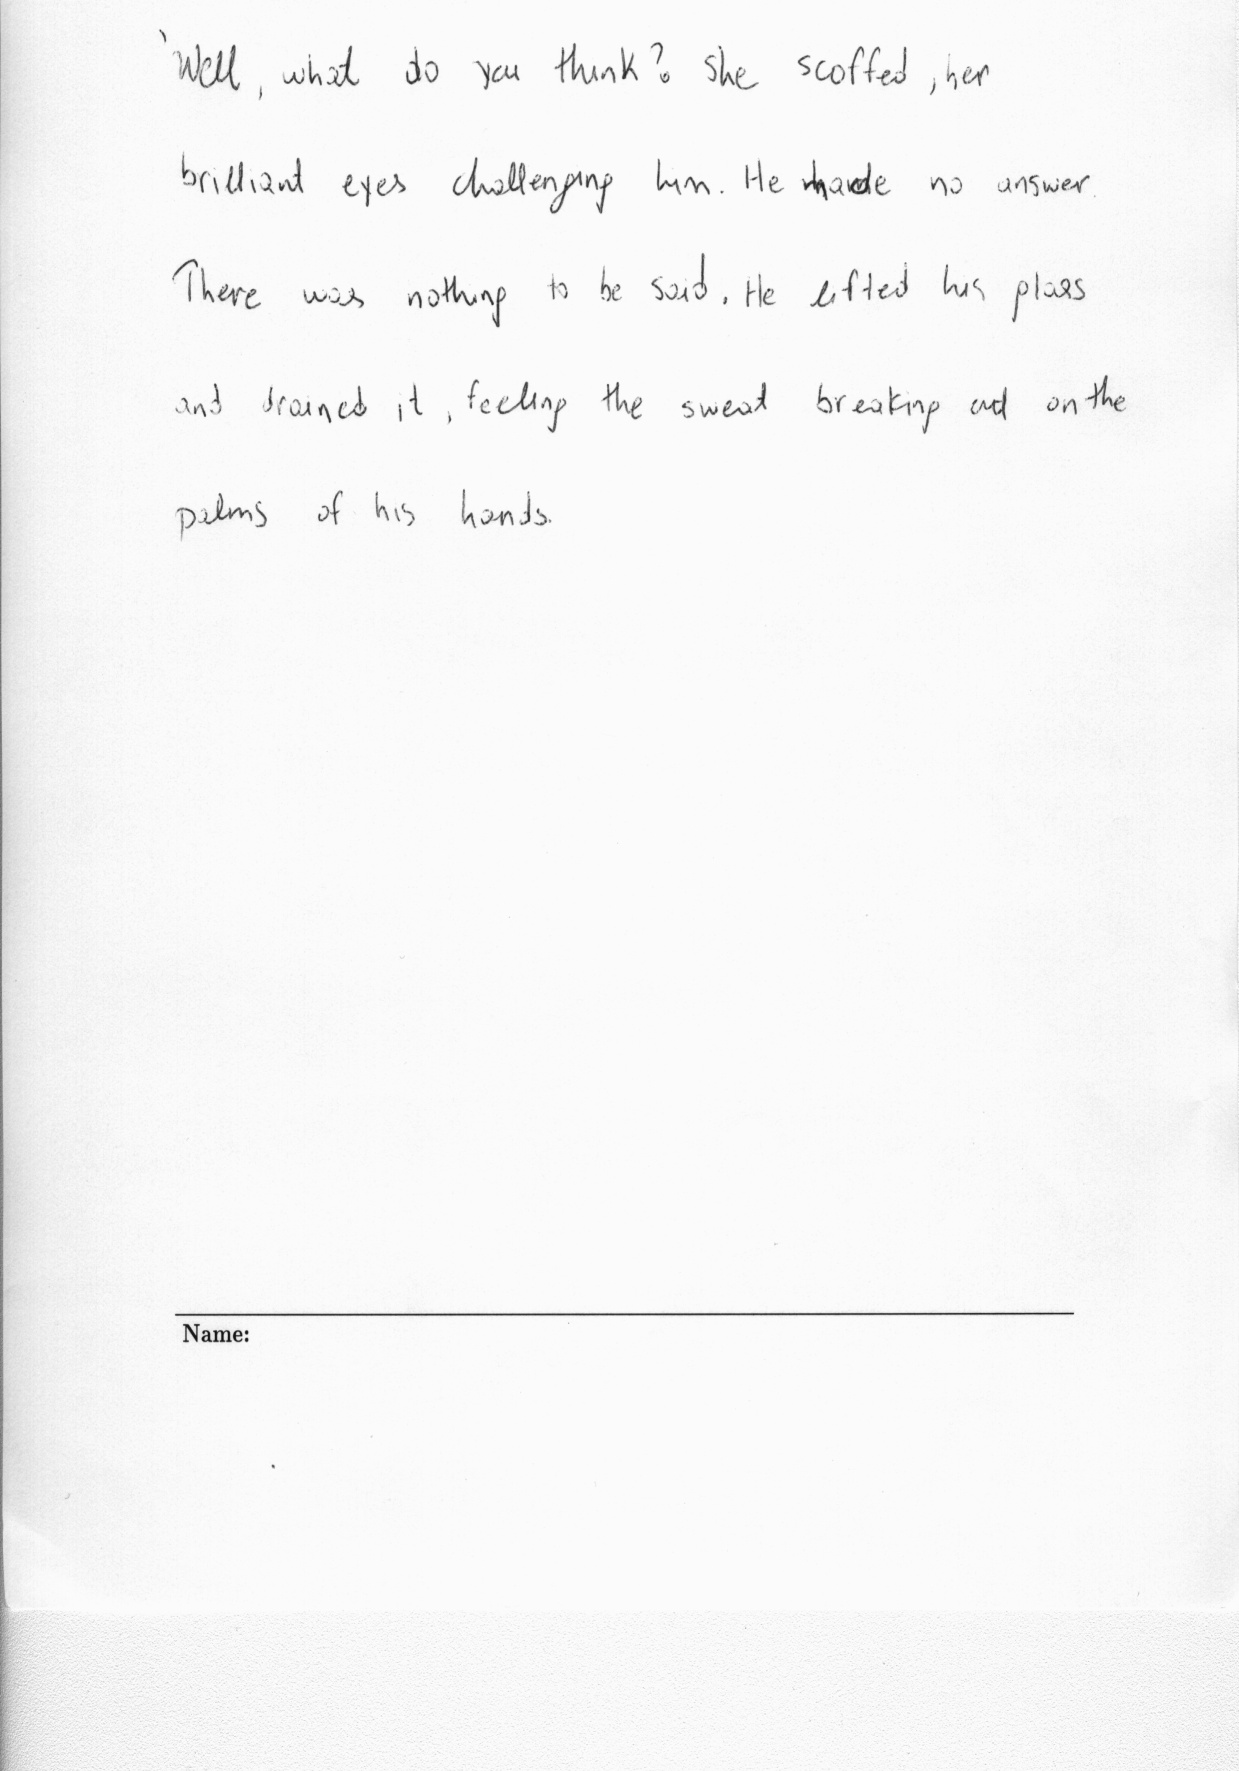 'Well, what do you think? She scoffed, her
brilliant eyes challenging him. He made no answer.
There was nothing to be said. He lifted his glass
and drained it, feeling the sweat breaking out on the
palms of his hands.
Name: